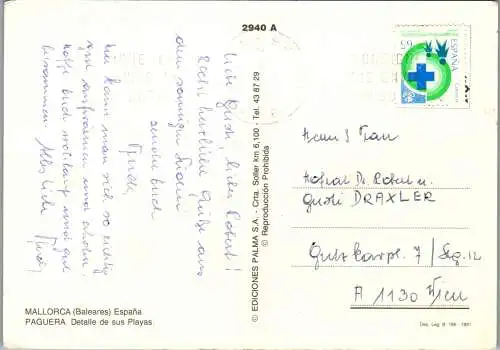 2940 A
Liebe Gusti, lieber Robert!
Recht herzliche Grüße aus
dem sonnigen Süden
sendet Euch
Hier kann man sich so richtig
ausspannen und erholen,
hoffe Euch wohlauf und gut
beisammen. Alles Liebe
ESPAÑA
Herrn & Frau
Hofrat Dr. Robert u.
Gusti DRAXLER
/ Stg. 12
A 1130 Wien
© EDICIONES PALMA S.A. - Crta. Soller km 6,100 - Tel. 43 87 29
© Reproducción Prohibida
MALLORCA (Baleares) España
PAGUERA. Detalle de sus Playas